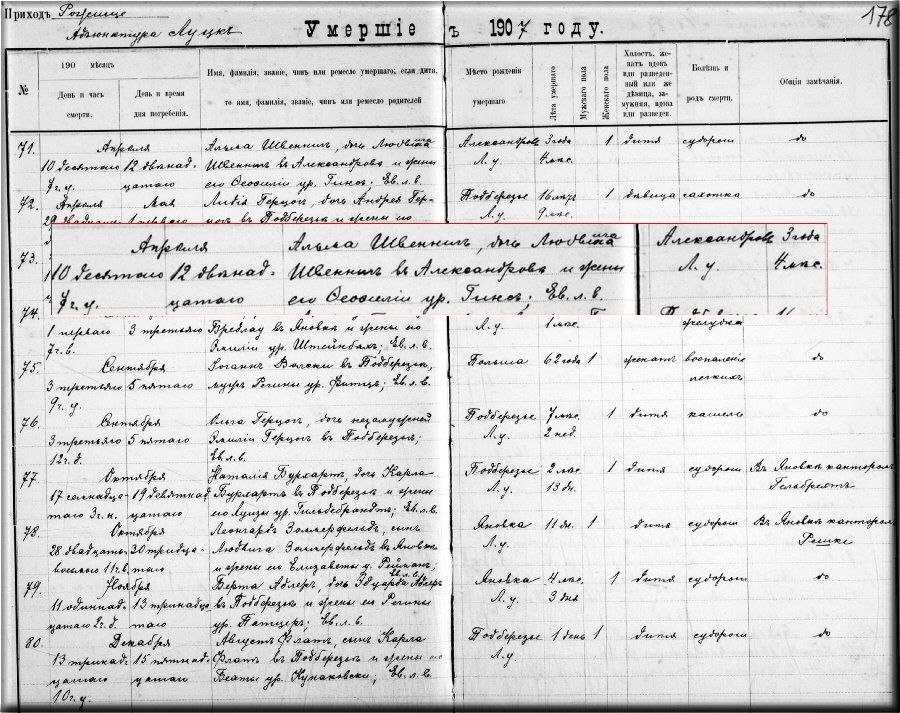 Приходъ Рожище
Адъюнктура Луцкъ
Умершіе въ 1907 году.
178
№
190 мѣсяцъ
День и часъ смерти.
День и время дня погребенія.
Имя, фамилія, званіе, чинъ или ремесло умершаго; если дитя,
то имя, фамилія, званіе, чинъ или ремесло родителей
Мѣсто рожденія умершаго
Лѣта умершаго
Мужскаго пола
Женскаго пола
Холостъ, женатъ вдовъ или разведенный или же дѣвица, замужняя, вдова или разведен.
Болѣзнь и родъ смерти.
Общія замѣчанія.
71. Апрѣля Альма Швенкнъ, дочь Людвига Александровъ 3 года 1 дитя судороги до
10 десятаго 12 двѣнад- Швенкнъ въ Александровъ и жены Л. у. 4 мѣс.
7 г. у. цатаго его Ѳеофиліи ур. Гинсъ; Ев. л. в.
72. Апрѣля Мая Лидія Герцогъ, дочь Андрея Гер- Подберезье 16 лѣтъ 1 дѣвица чахотка до
цогъ въ Подберезьѣ и жены его Л. у. 9 мѣс.
73. Апрѣля Альма Швенкнъ, дочь Людвига Александровъ 3 года
10 десятаго 12 двѣнад- Швенкнъ въ Александровъ и жены Л. у. 4 мѣс.
7 г. у. цатаго его Ѳеофиліи ур. Гинсъ; Ев. л. в.
74.
1 перваго 3 третьяго Бреслау въ Яновкѣ и жены его Л. у. 1 мѣс. желудка
7 г. в. Эмиліи ур. Штейнбахъ; Ев. л. в.
75. Сентября Іоганнъ въ Подберезьѣ, Польша 62 года 1 женатъ воспаленіе до
3 третьяго 5 пятаго мужъ Регины ур. Фитцъ; Ев. л. в. легкихъ
9 г. у.
76. Сентября Ольга Герцогъ, дочь незамужней Подберезье 7 мѣс. 1 дитя кашель до
3 третьяго 5 пятаго Эмиліи Герцогъ въ Подберезьѣ; Л. у. 2 нед.
12 г. д. Ев. л. в.
77. Октября Наталія Бурхартъ, дочь Карла Подберезье 2 мѣс. 1 дитя судороги Въ Яновкѣ канторомъ
17 семнадца- 19 девятнад- Бурхартъ въ Подберезьѣ и жены Л. у. 13 дн. Гельбрехтъ
таго 3 г. н. цатаго его Луизы ур. Гильдебрандтъ; Ев. л. в.
78. Октября Леонгардъ Зоммерфельдъ, сынъ Яновка 11 дн. 1 дитя судороги Въ Яновкѣ канторомъ
28 двадцать 30 тридца- Людвига Зоммерфельдъ въ Яновкѣ Л. у. Решке
восьмого 11 г. в. таго и жены его Елизаветы у. Рейманъ; Ев. л. в.
79. Ноября Берта Адлеръ, дочь Эдуарда Адлеръ Яновка 4 мѣс. 1 дитя судороги до
11 одиннад- 13 тринадца- въ Подберезьѣ и жены его Регины Л. у. 3 дня
цатаго 2 г. д. таго ур. Патцеръ; Ев. л. в.
80. Декабря Августъ Флатъ, сынъ Карла Подберезье 1 день 1 дитя судороги до
13 тринад- 15 пятнад- Флатъ въ Подберезьѣ и жены его Л. у.
цатаго цатаго Беаты ур. Кунаковски; Ев. л. в.
10 г. у.